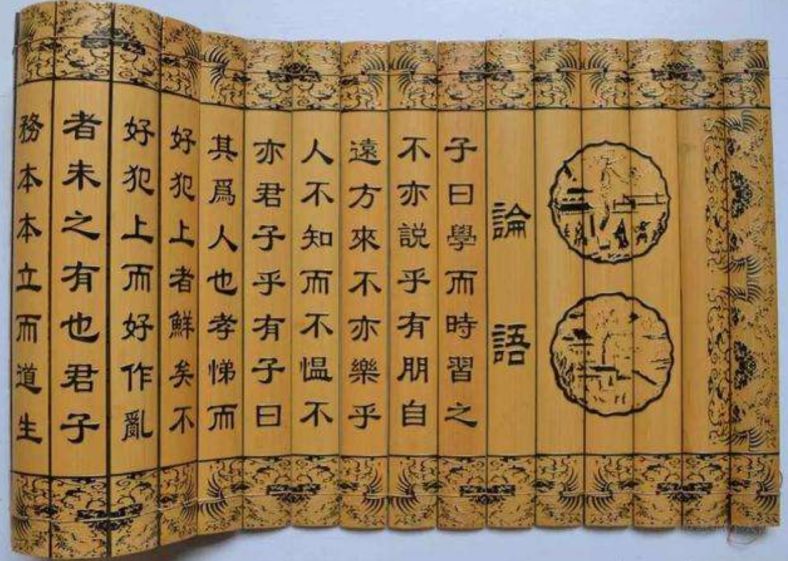 論語
子曰學而時習之
不亦說乎有朋自
遠方來不亦樂乎
人不知而不愠不
亦君子乎有子曰
其爲人也孝悌而
好犯上者鮮矣不
好犯上而好作亂
者未之有也君子
務本本立而道生